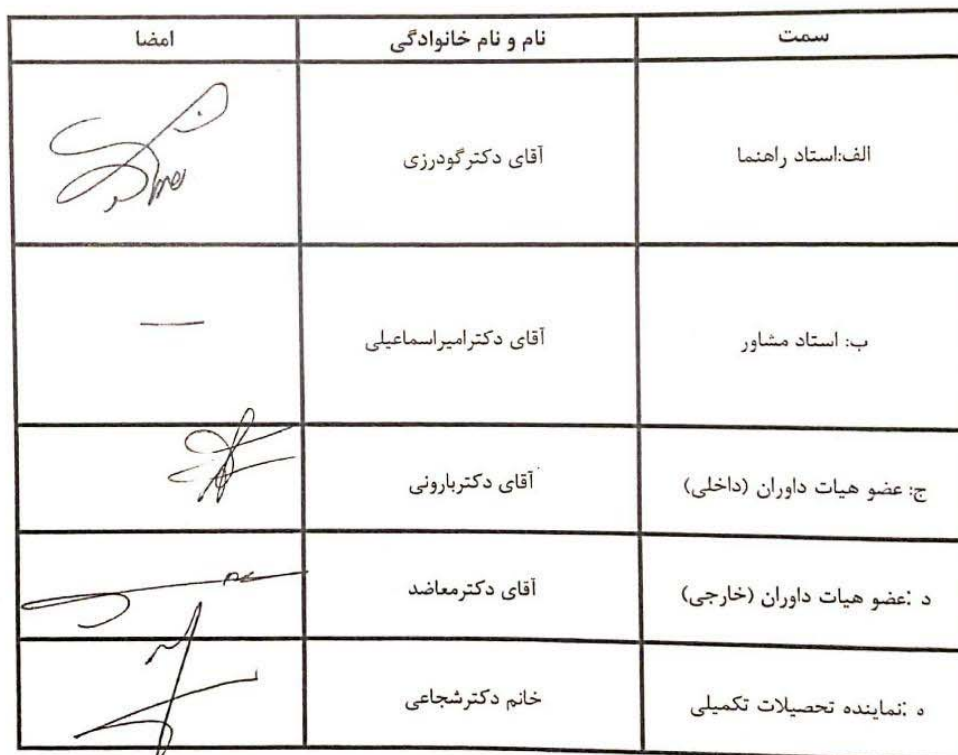 سمت نام و نام خانوادگی امضا
الف:استاد راهنما آقای دکترگودرزی
ب: استاد مشاور آقای دکترامیراسماعیلی
ج: عضو هیات داوران (داخلی) آقای دکتربارونی
د :عضو هیات داوران (خارجی) آقای دکترمعاضد
ه :نماینده تحصیلات تکمیلی خانم دکترشجاعی